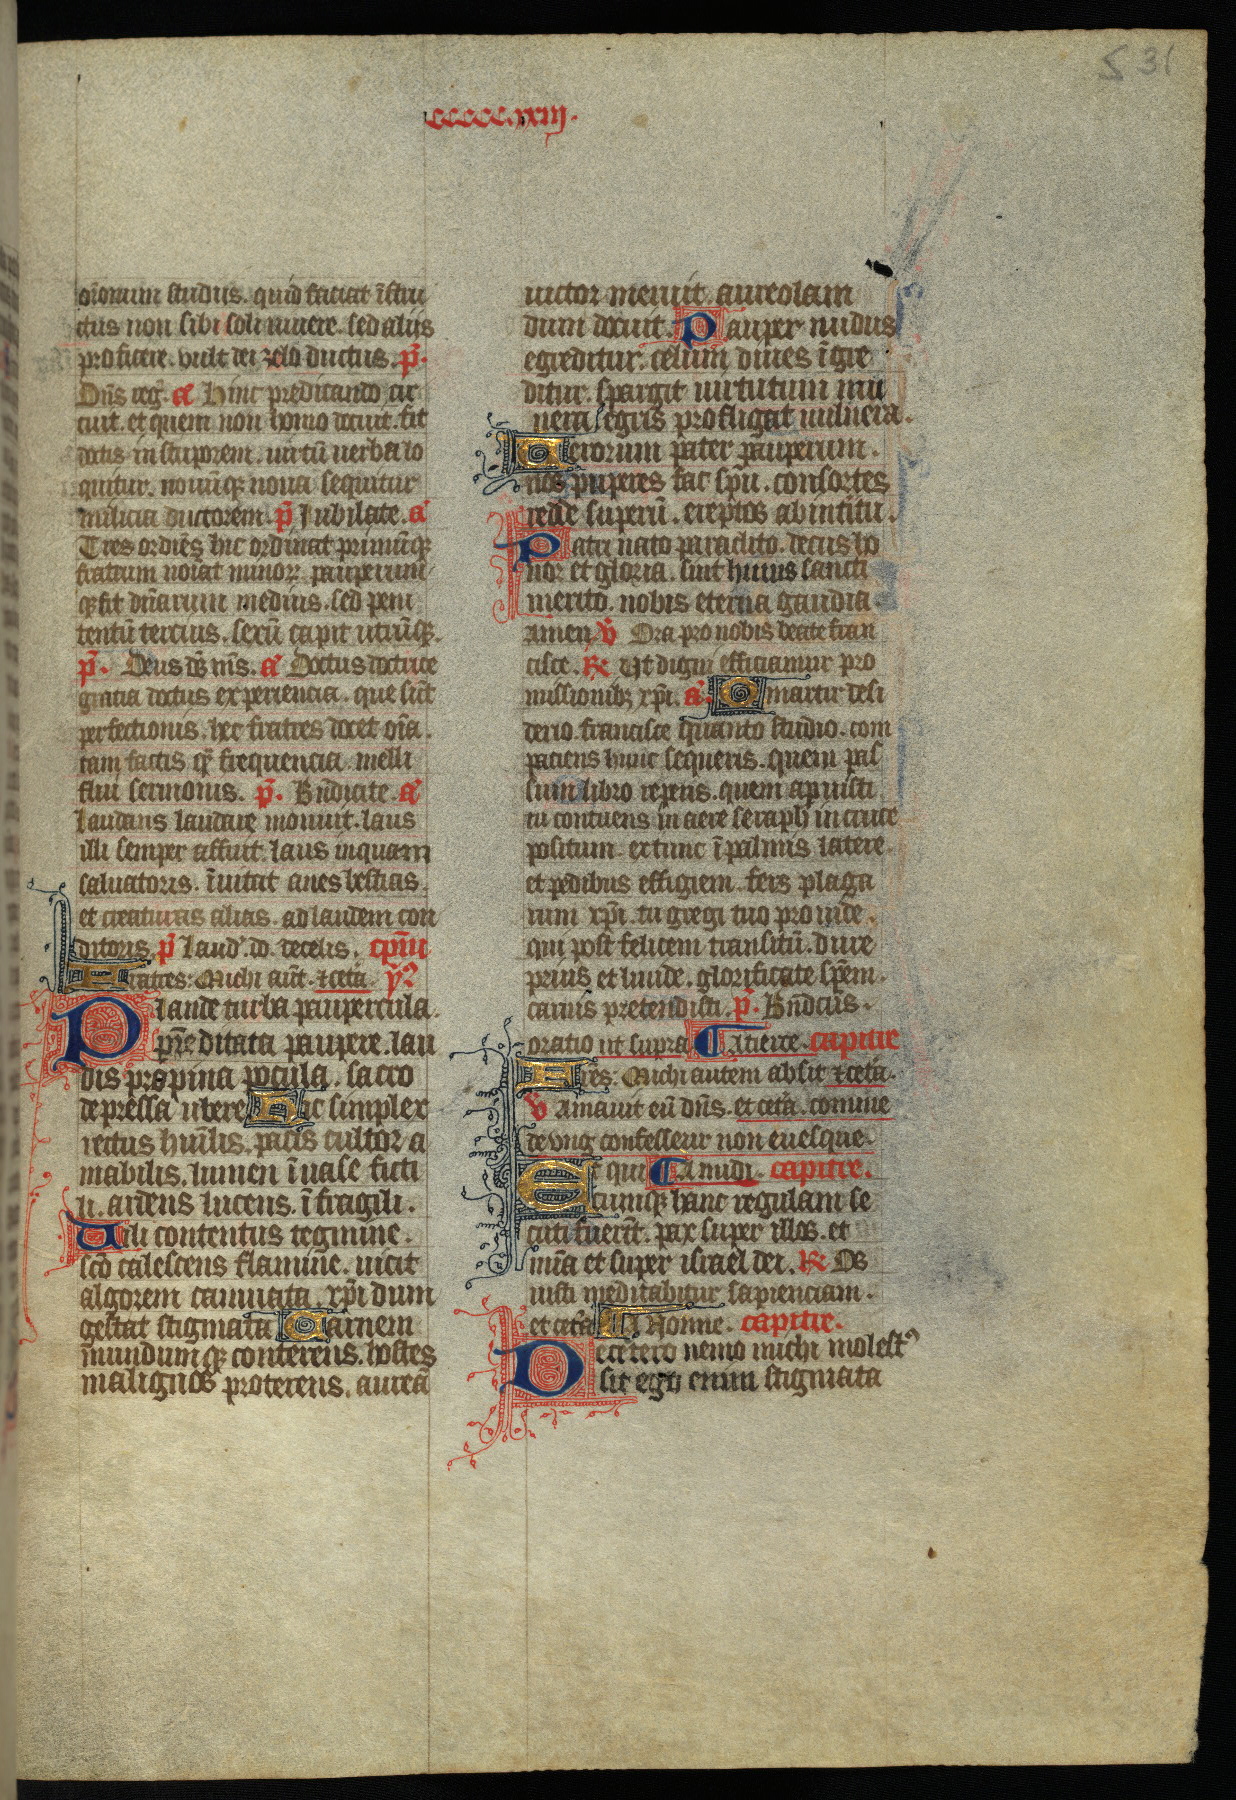 531
ccccc.xxiij.
orōrum studiis. quid faciat īstru
ctus non sibi soli uiuere. sed aliis
proficere. vult dei zelo ductus. p̄.
Dn̄s reḡ. a͛ Hinc predicando cir
cuit. et quem non homo docuit. fit
doctis in stuporem. uirtū uerba lo
quitur. nouūqꝫ noua sequitur
milicia ductorem. p̄ Jubilate. a͛
Tres ordīes hic ordinat primūqꝫ
fratrum noīat minoꝝ pauperum
qꝫ fit dn̄arum medius. sed peni
tentū tercius. sexū capit utrūqꝫ.
p̄. Deus ds̄ ms̄. a͛ Doctus doctrice
gracia doctus experiencia. que sūt
perfectionis. hec fratres docet oīa.
tam factis qꝫ frequencia melli
flui sermonis. p̄. Bn̄dicite. a͛
Laudans laudare monuit. laus
illi semper affuit. laus inquam
saluatoris. īuitat aues bestias.
et creaturas alias. ad laudem con
ditoris. p̄ Laud' d. decelis. cpm̄
Fratres: Michi aūt. ⁊cetā ẏ.
Plande turba paupercula.
p̄re ditata paupere. lau
dis propina pocula. sacro
depressa ubere Hic simplex
rectus hum̄lis. pacis cultor a
mabilis. lumen ī uase ficti
li. ardens lucens. ī fragili.
Uili contentus tegmine.
sco calescens flamine. uicit
algorem cauuata. xpī dum
gestat stigmata Carnem
mundumqꝫ conterens. hostes
malignos proterens. aureā
uictor meruit. aureolam
dum docuit. Pauper nudus
egreditur. celum diues ī gre
ditur. spargit uirtutum mu
nera. egris profligat uulnera.
Merorum pater pauperum.
nos puperes fac spū. consortes
redde superū. ereptos ab intitu.
Patri nato paraclito. decus ho
nor et gloria. sint huius sancti
merito. nobis eterna gaudia.
amen v̄ Ora pro nobis beate fran
cisce. ℞ Ut digni efficiamur pro
missionibꝫ xpī. a͛. O martir desi
derio. francisce quanto studio. com
paciens hunc sequeris. quem pas
sum libro reperis. quem apuisti
tu contuens in aere seraph in cruce
positum. ex tunc ī palmis latere.
et pedibus effigiem. fers plaga
rum xpī. tu gregi tuo prouide.
qui post felicem transitū. dire
prius et liuide. glorificate spēm.
carnis pretendisti. p̄. Bn̄dcūs.
oratio ut supra Ad tierce. capitle
Fr̄es: Michi autem absit ⁊cetā.
v̄ Amauit eū dn̄s. et cetā. comme
de vng confesseur non euesque.
Et qui A midi. capitle.
cumqꝫ hanc regulam se
cuti fuerīt. pax super illos. et
mīa et super israel dei. ℞ Os
iusti meditabitur sapienciam.
et cetā A Nonne. capitle.
De cetero nemo michi molest᷒
sit ego enim stigmata